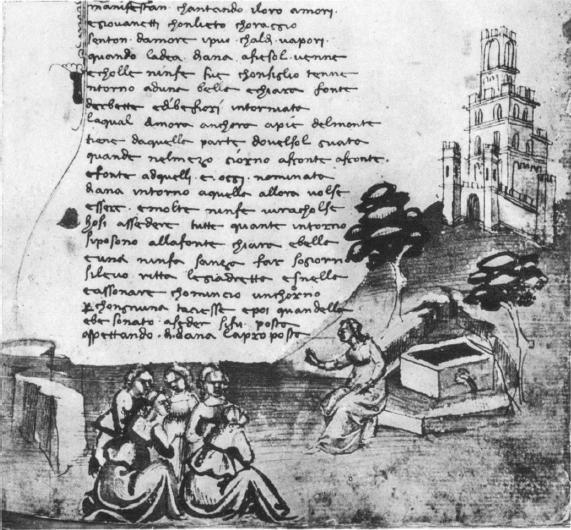 manifestan chantando iloro amori.
egiovanetti chonlieto choraggio
senton damore ipiu chaldi vapori.
quando ladea diana afiesol venne
echolle ninfe sue chonsiglio tenne
ntorno aduna bella echiara fonte
derbette edibefiori intorniata
laqual dimora anchora apie delmonte
tiene daquella parte dovelsol guata
quande nelmezo giorno afronte afronte.
efonte adquelli e oggi nominata
diana intorno aquella allora volse
essere emolte ninfe viracholse
hosi assedere tutte quante intorno
siposono allafonte chiara ebella
euna ninfa sanza far sogiorno
silevo ritta legiadretta esnella
eassonare chomincio unchorno
Perchongniuna taciesse epoi quandella
ebe sonato aseder sifu posta
aspettando didiana laproposta